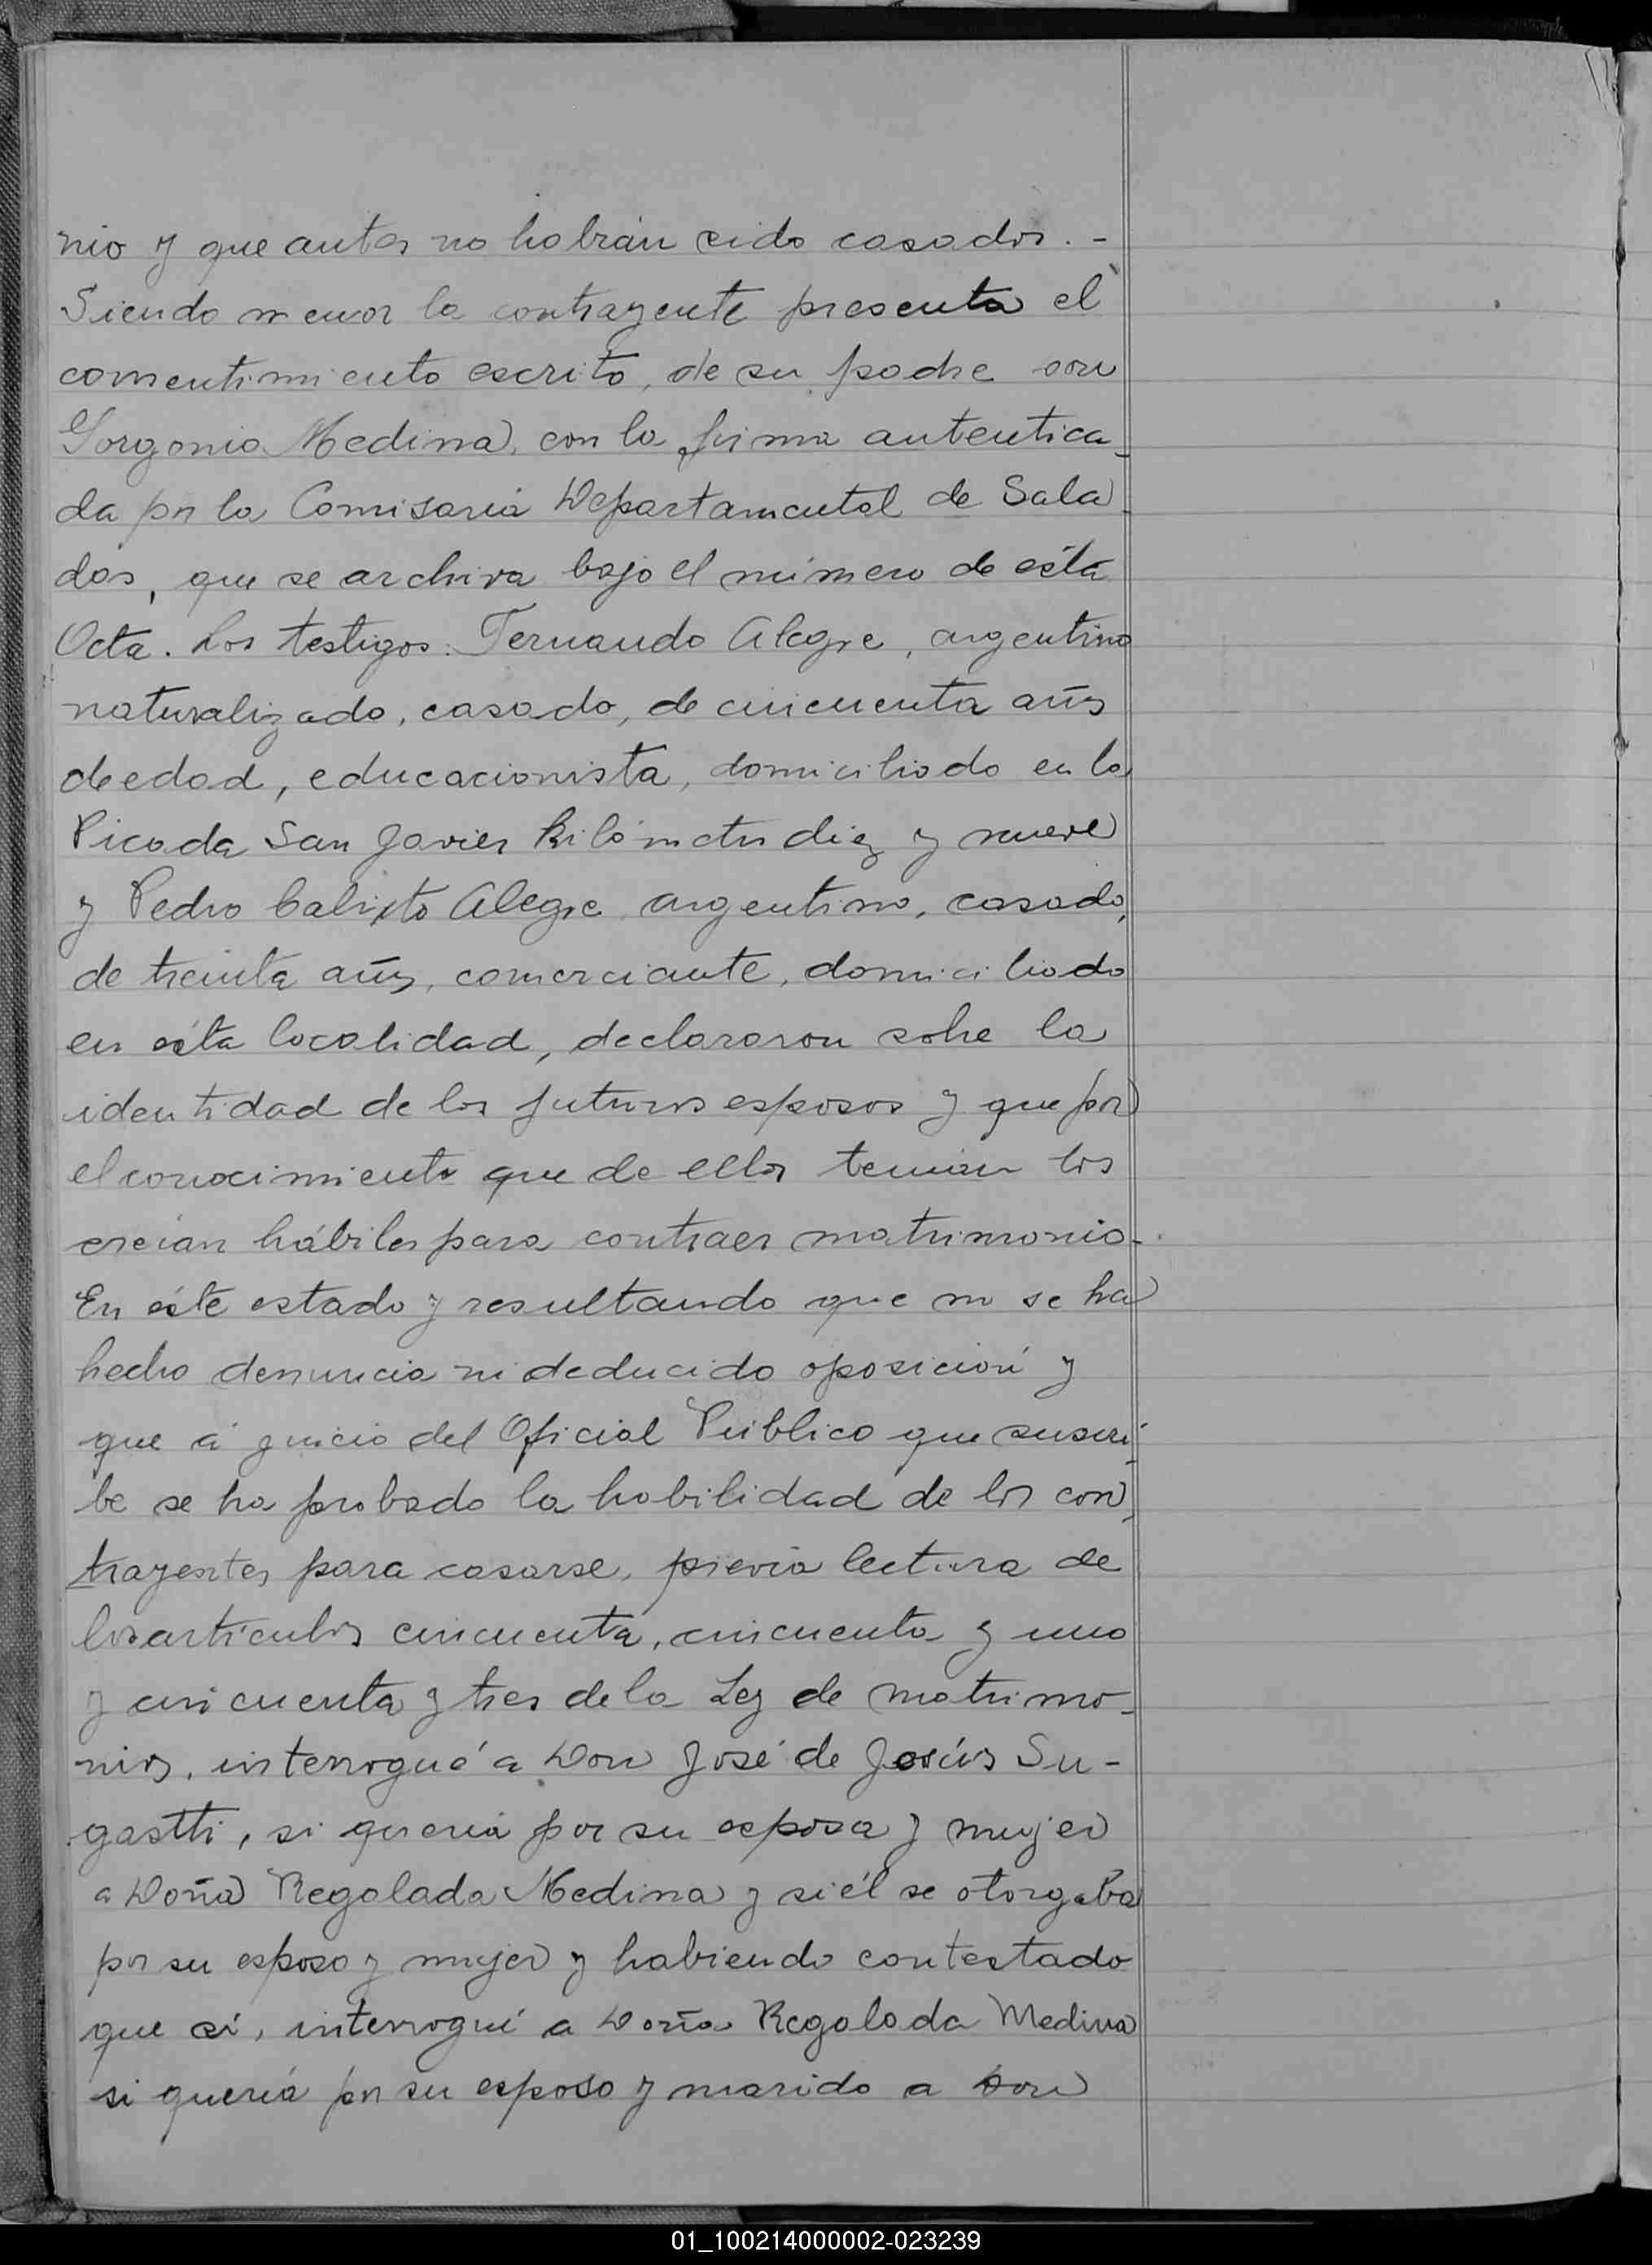 nio y que antes no habían sido casados. -
Siendo menor la contrayente presenta el
consentimiento escrito, de su padre don
Gorgonio Medina, con la firma autentica-
da por la Comisaria Departamental de Sala-
dos, que se archiva bajo el número de ésta
Acta. Los testigos: Fernando Alegre, argentino
naturalizado, casado, de cincuenta años
de edad, educacionista, domiciliado en la
Picada San Javier Kilómetro diez y nueve
y Pedro Calixto Alegre, argentino, casado,
de treinta años, comerciante, domiciliado
en ésta localidad, declararon sobre la
identidad de los futuros esposos y que por
el conocimiento que de ellos tenían los
creían hábiles para contraer matrimonio-.
En éste estado y resultando que no se ha
hecho denuncia ni deducido oposición y
que á juicio del Oficial Público que suscri-
be se ha probado la habilidad de los con-
trayentes para casarse, previa lectura de
los artículos cincuenta, cincuenta y uno
y cincuenta y tres de la Ley de matrimo-
nios, interrogué a Don José de Jesús Su-
gastti, si quería por su esposa y mujer
a Doña Regalada Medina y si él se otorgaba
por su esposo y mujer y habiendo contestado
que sí, interrogué a Doña Regalada Medina
si quería por su esposo y marido a Don
01_100214000002-023239